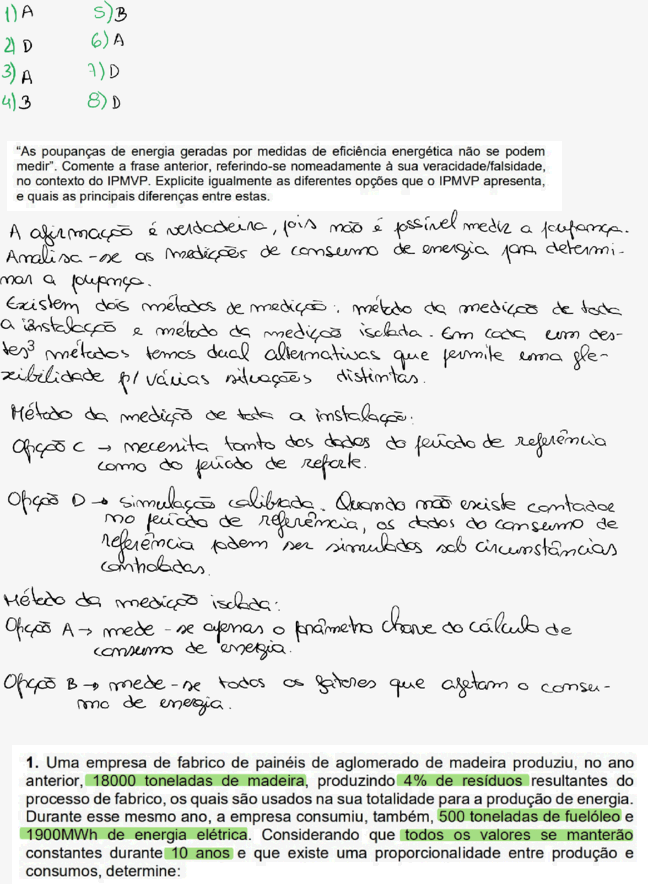 1) A 5) B
2) D 6) A
3) A 7) D
4) B 8) D
"As poupanças de energia geradas por medidas de eficiência energética não se podem
medir". Comente a frase anterior, referindo-se nomeadamente à sua veracidade/falsidade,
no contexto do IPMVP. Explicite igualmente as diferentes opções que o IPMVP apresenta,
e quais as principais diferenças entre estas.
A afirmação é verdadeira, pois não é possível medir a poupança.
Analisa-se as medições de consumo de energia para determi-
nar a poupança.
Existem dois métodos de medição: método da medição de toda
a instalação e método da medição isolada. Em cada um des-
tes métodos temos dual alternativas que permite uma fle-
xibilidade p/ várias situações distintas.
Método da medição de toda a instalação:
Opção C → necessita tanto dos dados do período de referência
como do período de reporte.
Opção D → simulação calibrada. Quando não existe contador
no período de referência, os dados do consumo de
referência podem ser simulados sob circunstâncias
controladas.
Método da medição isolada:
Opção A → mede-se apenas o parâmetro chave do cálculo de
consumo de energia.
Opção B → mede-se todos os fatores que afetam o consu-
mo de energia.
1. Uma empresa de fabrico de painéis de aglomerado de madeira produziu, no ano
anterior, 18000 toneladas de madeira, produzindo 4% de resíduos resultantes do
processo de fabrico, os quais são usados na sua totalidade para a produção de energia.
Durante esse mesmo ano, a empresa consumiu, também, 500 toneladas de fuelóleo e
1900MWh de energia elétrica. Considerando que todos os valores se manterão
constantes durante 10 anos e que existe uma proporcionalidade entre produção e
consumos, determine: